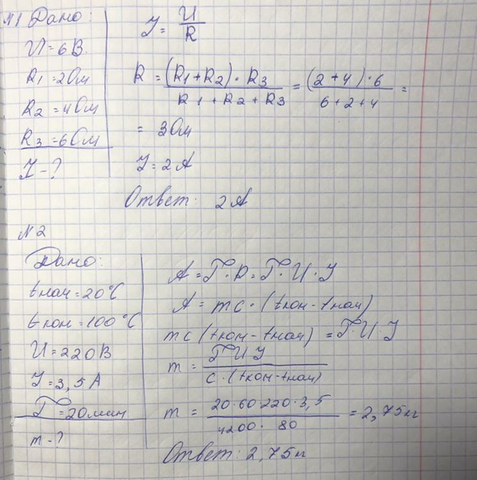 №1 Дано:
U=6В
R1=2Ом
R2=4Ом
R3=6Ом
I-?
I = U/R
R = (R1+R2)·R3 / R1+R2+R3 = (2+4)·6 / 6+2+4 =
= 3Ом
I=2А
Ответ: 2А
№2
Дано:
tнач=20°C
tкон=100°C
U=220В
I=3,5А
T=20мин
m-?
A=T·P=T·U·I
A=mc·(tкон-tнач)
mc(tкон-tнач)=TUI
m = TUI / c·(tкон-tнач)
m = 20·60·220·3,5 / 4200·80 = 2,75кг
Ответ: 2,75кг